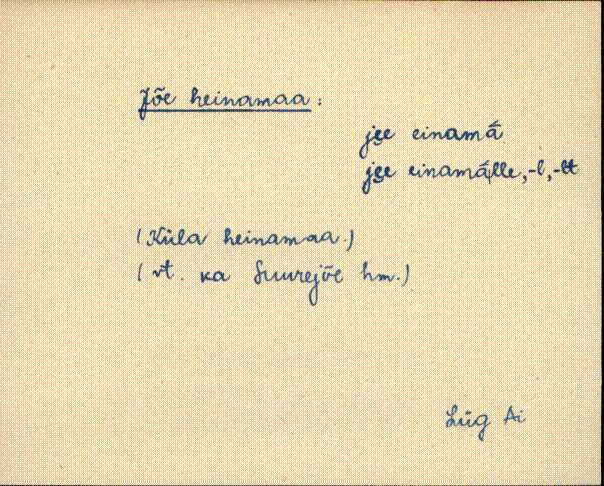 Jõe heinamaa:
je̮e einamá
je̮e einamálle, -l, -lt
(Küla heinamaa.)
(vt. ka Suurejõe hm.)
Lüg Ai